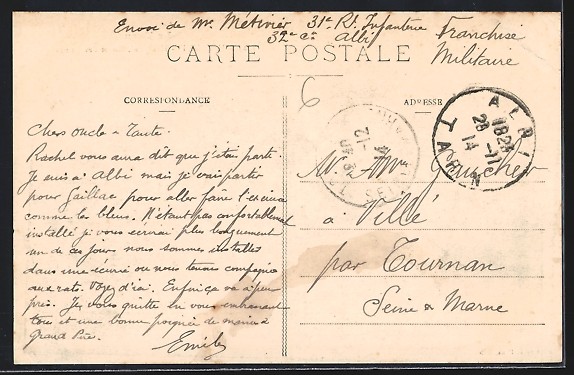 Envoi de Mr Métivier 31e Rt Infanterie
32e Cie Albi
Franchise
Militaire
CARTE POSTALE
CORRESPONDANCE
ADRESSE
6
Chers oncle & Tante.
Rachel vous aura dit que j'étais parti.
Je suis à Albi mais je vais partir
pour Gaillac pour aller faire l'exercice
comme les bleus. N'étant pas confortablement
installé je vous écrirai plus longuement
un de ces jours nous sommes installés
dans une écurie ou nous tenons compagnie
aux rats. Voyez d'ici. Enfin ça va à peu
près. Je vous quitte en vous embrassant
tous et une bonne poignée de mains à
Grand Père.
Emile
ALBI
18 25
28 -11
14
TARN
Mr & Mme Gaucher
à Villé
par Tournan
Seine & Marne